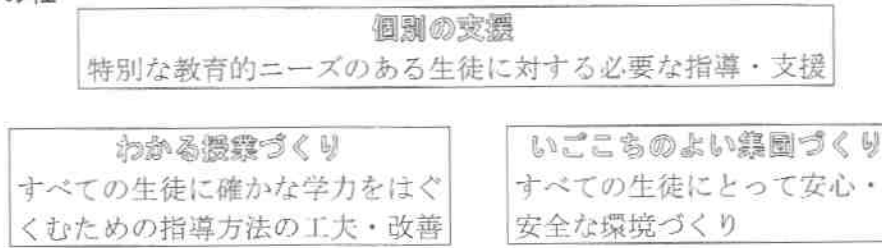 個別の支援
特別な教育的ニーズのある生徒に対する必要な指導・支援
わかる授業づくり
すべての生徒に確かな学力をはぐ
くむための指導方法の工夫・改善
いごこちのよい集団づくり
すべての生徒にとって安心・
安全な環境づくり